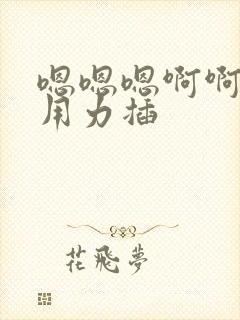 嗯嗯嗯啊啊
用力插
花飛夢